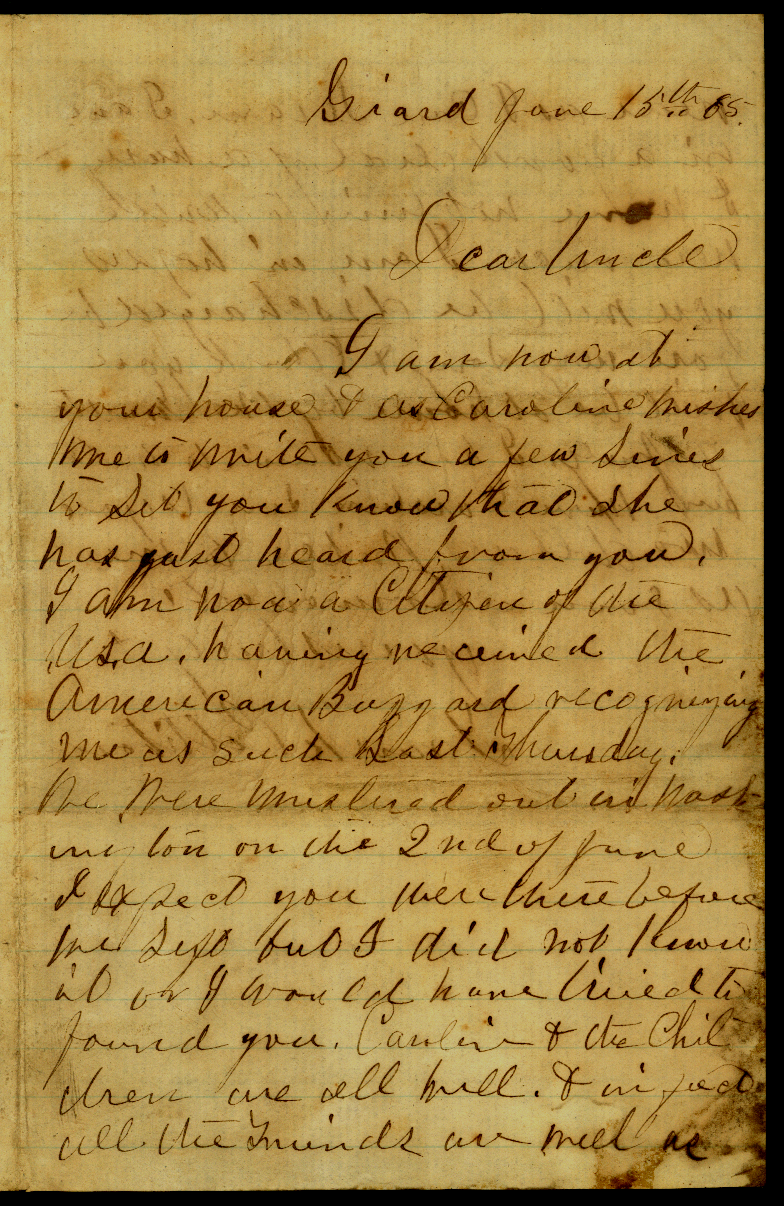 Girard June 15th 65.
Dear Uncle
I am now at
your house & as Caroline wishes
me to write you a few lines
to let you know that she
has just heard from you.
I am now a Citizen of the
U.S.a. having received the
American Buzzard recognizing
me as such Last Thursday.
We Were mustered out in Wash-
ington on the 2nd of June
I expect you were there before
we left but I did not know
it or I would have tried to
found you. Caroline & the Chil
dren are all well. & in fact
all the friends are well as